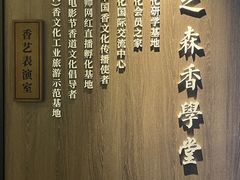 之森香學堂
化研学基地
化会员之家
化国际交流中心
国香文化传播使者
师网红直播孵化基地
电影节香道文化倡导者
）香文化工业旅游示范基地
香艺表演室